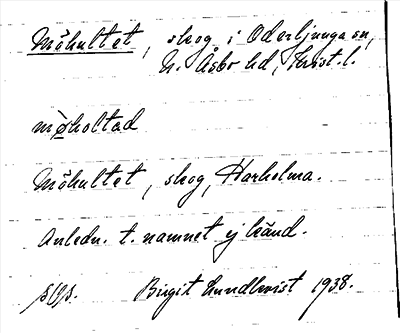 Måhultet, skog i Oderljunga sn,
N. Åsbo hd, Krist. l.
Måhultet, skog, Harholma.
Anledn. t. namnet ej känd.
Birgit Lundkvist 1938.